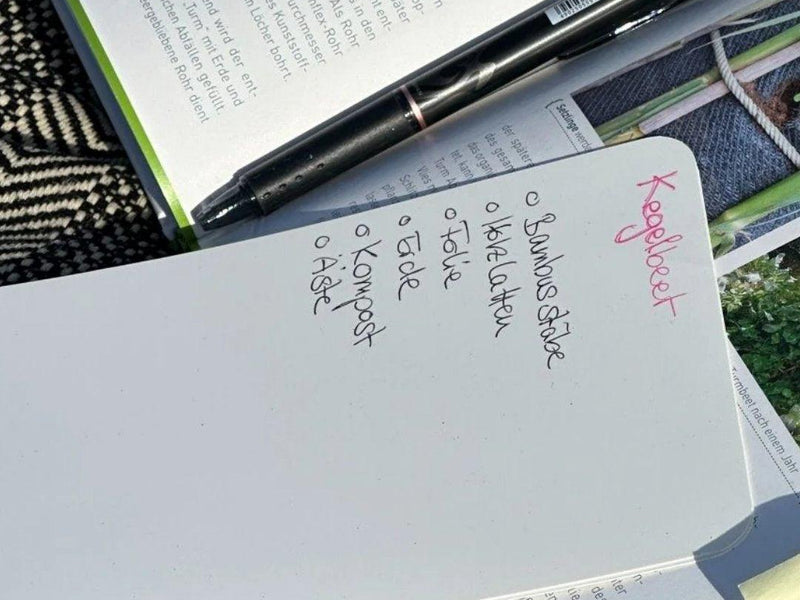 Kegelbeet
o Bambusstäbe
o Holzlatten
o Folie
o Erde
o Kompost
o Äste
in den
Als Rohr
nflex-Rohr
urchmesser
es Kunststoff-
Löcher bohrt.
end wird der ent-
„Turm“ mit Erde und
schen Abfällen gefüllt.
eergebliebene Rohr dient
Setzlinge
der später
des
kann
Turm
Vlies
Turmbeet nach einem Jahr